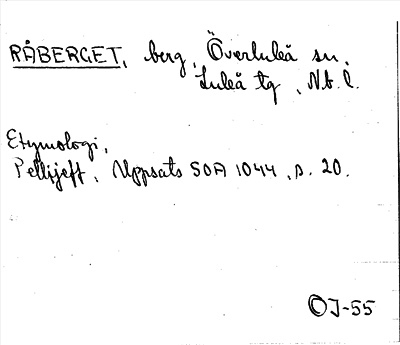 RÅBERGET, berg, Överluleå sn,
Luleå tg, Nb. l.
Etymologi,
Pellijeff, Uppsats SOA 1044, s. 20.
OJ-55